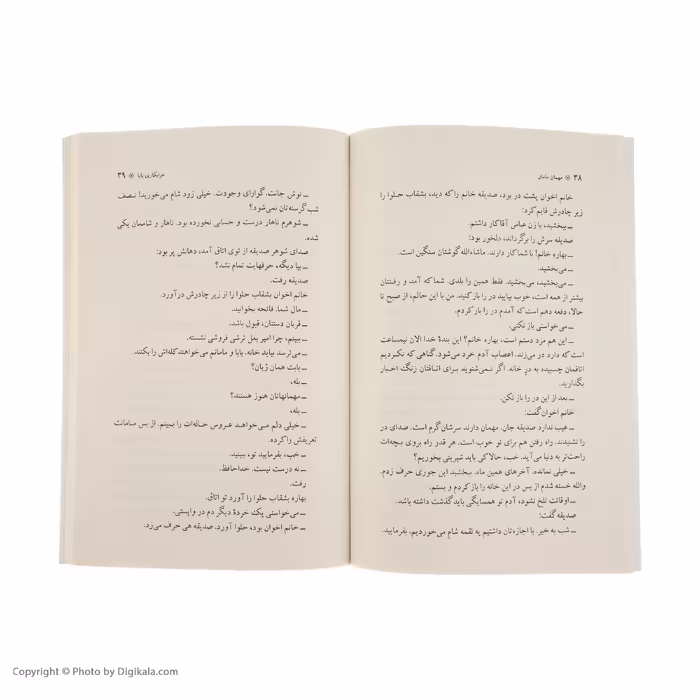 ۳۸ ⊙ مهمان مامان
خانم اخوان پشت در بود، صدیقه خانم را که دید، بشقاب حلوا را
زیر چادرش قایم کرد:
ــ ببخشید، با زن عباس آقا کار داشتم.
صدیقه سرش را برگرداند، دلخور بود:
ــ بهاره خانم! با شما کار دارند. ماشاءالله گوشتان سنگین است.
ــ می‌بخشید.
ــ می‌بخشید، می‌بخشید. فقط همین را بلدی. شما که آمد و رفتتان
بیشتر از همه است، خوب بیایید در را باز کنید. من با این حالم، از صبح تا
حالا، دفعه دهم است که آمدم در را باز کردم.
ــ می‌خواستی باز نکنی.
ــ این هم مزد دستم است، بهاره خانم؟ این بندهٔ خدا الان نیمساعت
است که دارد در می‌زند. اعصاب آدم خرد می‌شود. گناهی که نکردیم
اتاقمان چسبیده به درِ خانه. اگر نمی‌شنوید برای اتاقتان زنگ اخبار
بگذارید.
ــ بعد از این در را باز نکن.
خانم اخوان گفت:
ــ عیب ندارد صدیقه جان. مهمان دارند سرشان گرم است. صدای در
را نشنیدند. راه رفتن هم برای تو خوب است. هر قدر راه بروی بچه‌ات
راحت‌تر به دنیا می‌آید. خب، حالا کی باید شیرینی بخوریم؟
ــ خیلی نمانده. آخرهای همین ماه. ببخشید این جوری حرف زدم.
والله خسته شدم از بس در این خانه را باز کردم و بستم.
ــ اوقاتت تلخ نشود، آدم تو همسایگی باید گذشت داشته باشد.
صدیقه گفت:
ــ شب به خیر. با اجازه‌تان داشتیم یه لقمه شام می‌خوردیم. بفرمایید.
خرابکاری بابا ⊙ ۳۹
ــ نوش جانت. گوارای وجودت. خیلی زود شام می‌خورید! نصف
شب گرسنه‌تان نمی‌شود؟
ــ شوهرم ناهار درست و حسابی نخورده بود. ناهار و شاممان یکی
شده.
صدای شوهر صدیقه از توی اتاق آمد، دهانش پر بود:
ــ بیا دیگه، حرفهایت تمام نشد؟
صدیقه رفت.
خانم اخوان بشقاب حلوا را از زیر چادرش درآورد.
ــ مال شما. فاتحه بخوانید.
ــ قربان دستتان، قبول باشد.
ــ ببینم، چرا امیر بغل ترشی فروشی نشسته.
ــ می‌ترسد بیاید خانه. بابا و مامانم می‌خواهند کله‌اش را بکنند.
ــ بابت همان ژیان؟
ــ بله،
ــ مهمانهاتان هنوز هستند؟
ــ بله،
ــ خیلی دلم می‌خواهد عروس خاله‌ات را ببینم. از بس مامانت
تعریفش را کرده.
ــ خب، بفرمایید تو، ببینید.
ــ نه درست نیست. خداحافظ.
رفت.
بهاره بشقاب حلوا را آورد تو اتاق.
ــ می‌خواستی یک خردهٔ دیگر دم در وایستی.
ــ خانم اخوان بود، حلوا آورد. صدیقه هی حرف می‌زد.
Copyright © Photo by Digikala.com